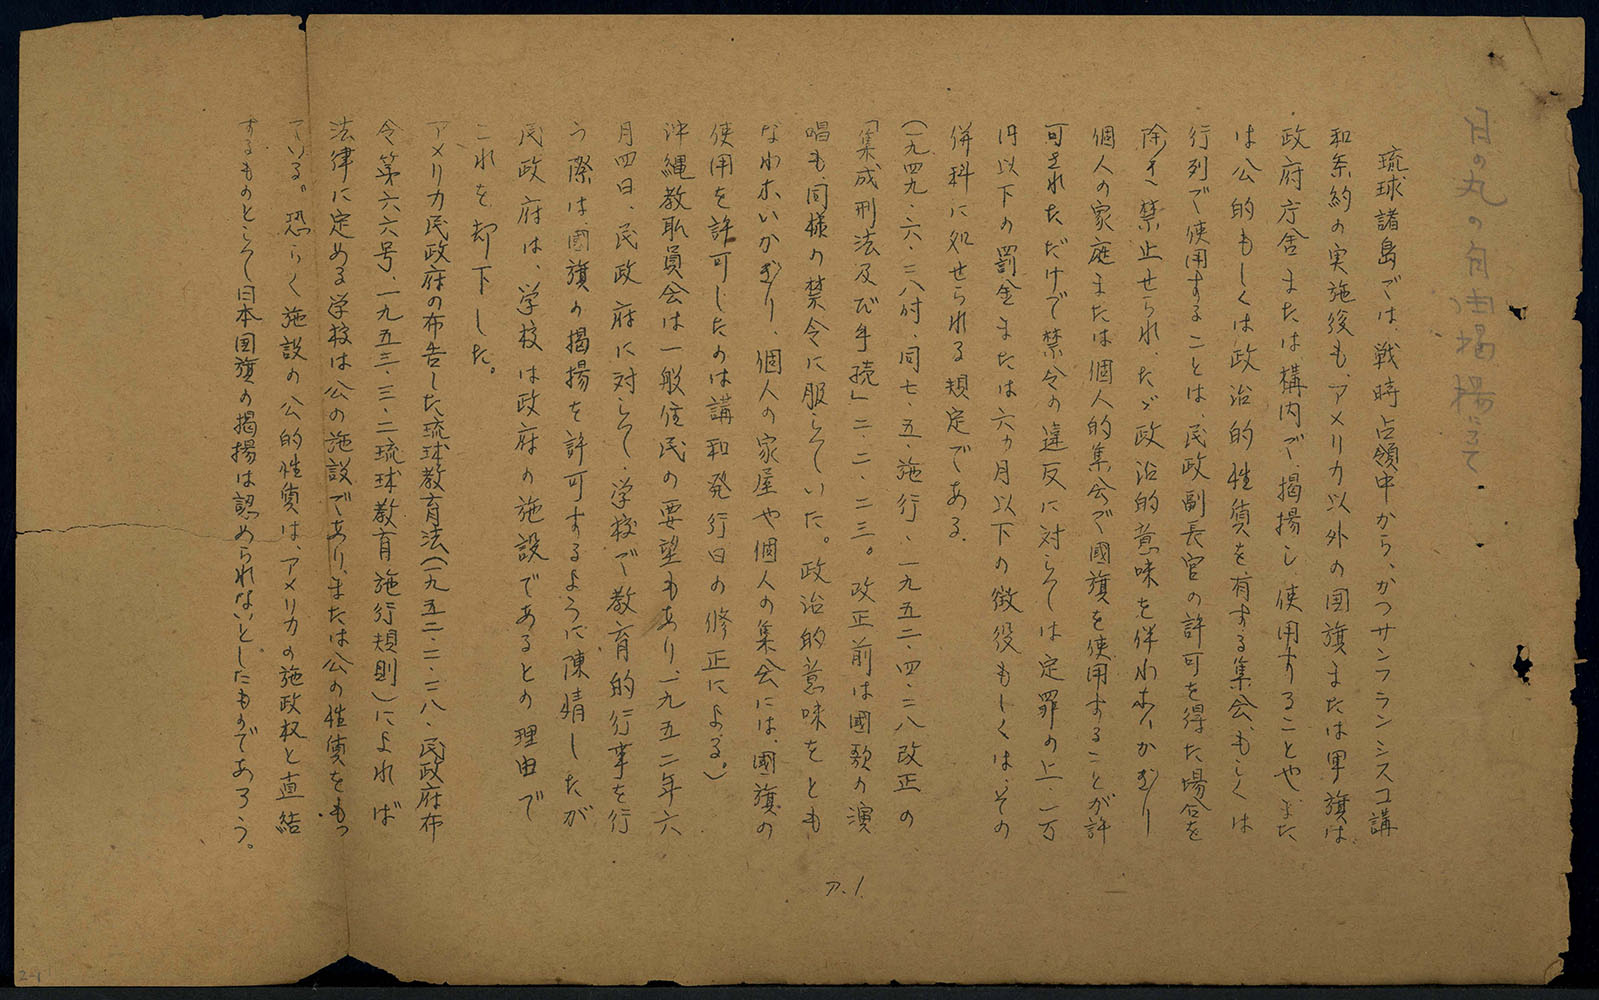 日の丸の自由掲揚について
琉球諸島では、戦時占領中から、かつサンフランシスコ講
和条約の実施後も、アメリカ以外の国旗または軍旗は
政府庁舎または構内で、掲揚し、使用することやまた
は公的もしくは政治的性質を有する集会、もしくは
行列で使用することは、民政副長官の許可を得た場合を
除き、禁止せられ、たゞ政治的意味を伴わないかぎり
個人の家庭または個人的集会で國旗を使用することが許
可されただけで禁令の違反に対しては定罪の上、一万
円以下の罰金または六カ月以下の徴役もしくは、その
併科に処せられる規定である。
(一九四九・六・二八付、同七・五・施行、一九五二・四・二八改正の
「集成刑法及び手続」二・二・二三。改正前は國歌の演
唱も、同様の禁令に服していた。政治的意味をとも
なわないかぎり、個人の家屋や個人の集会には、國旗の
使用を許可したのは講和発行日の修正による。)
沖縄教職員会は一般住民の要望もあり、一九五二年六
月四日、民政府に対して、学校で教育的行事を行
う際は、國旗の掲揚を許可するように陳情したが
民政府は、学校は政府の施設であるとの理由で
これを却下した。
アメリカ民政府の布告した琉球教育法(一九五二・二・二八・民政府布
令第六六号、一九五三・三・二琉球教育施行規則)によれば
法律に定める学校は公の施設であり、または公の性質をもっ
ている。恐らく施設の公的性質は、アメリカの施政权と直結
するものとして日本国旗の掲揚は認められないとしたものであろう。
ア.1
2-1